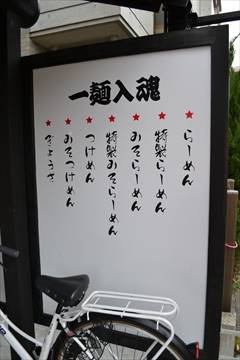 一麺入魂
★らーめん
★特製らーめん
★みそらーめん
★特製みそらーめん
★つけめん
★みそつけめん
★ぎょうざ